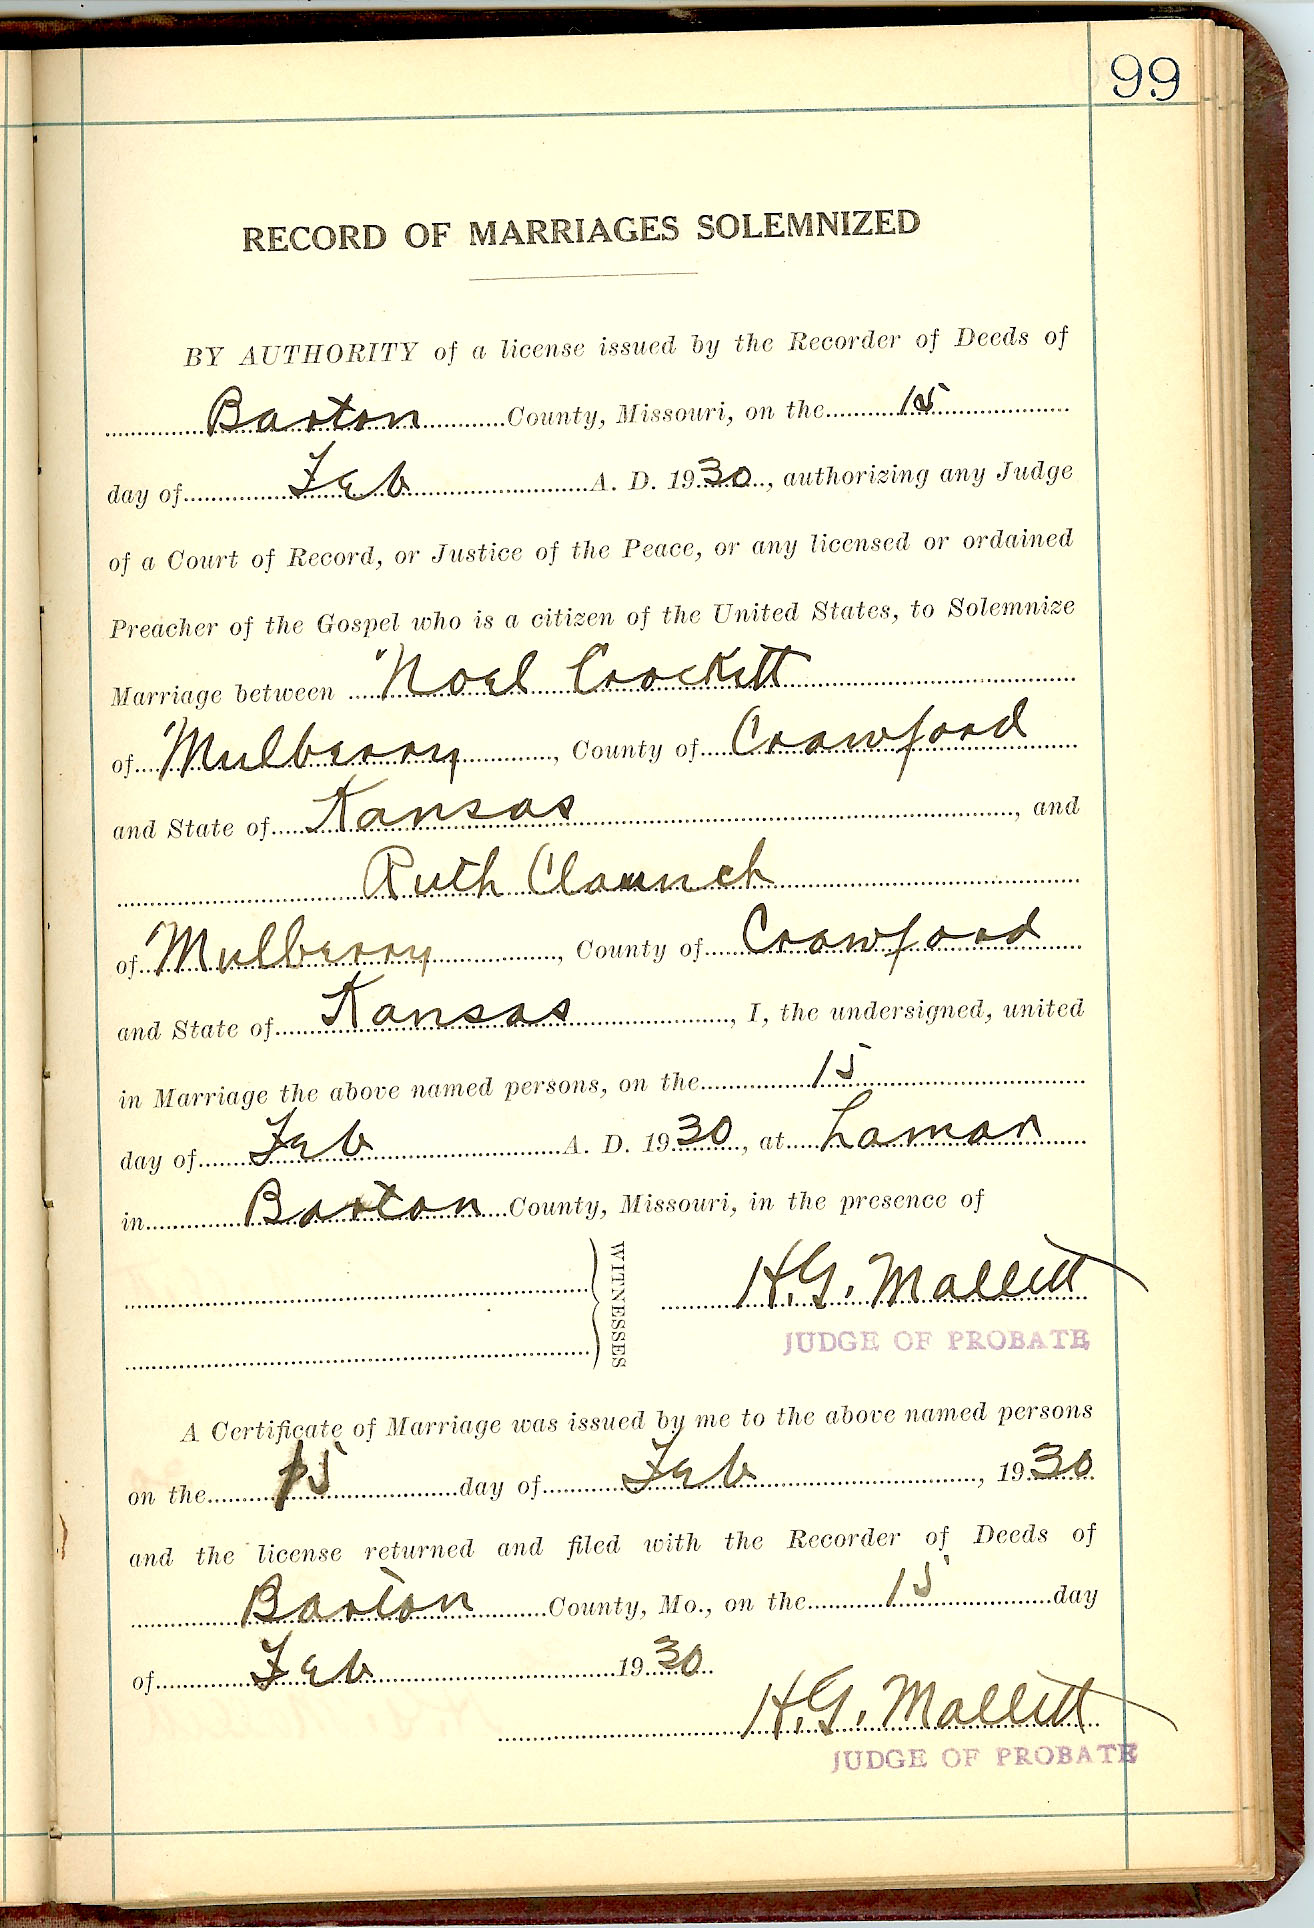 99
RECORD OF MARRIAGES SOLEMNIZED
BY AUTHORITY of a license issued by the Recorder of Deeds of
Barton County, Missouri, on the 15
day of Feb A. D. 1930, authorizing any Judge
of a Court of Record, or Justice of the Peace, or any licensed or ordained
Preacher of the Gospel who is a citizen of the United States, to Solemnize
Marriage between Noel Crockett
of Mulberry, County of Crawford
and State of Kansas, and
Ruth Claunch
of Mulberry, County of Crawford
and State of Kansas, I, the undersigned, united
in Marriage the above named persons, on the 15
day of Feb A. D. 1930, at Lamar
in Barton County, Missouri, in the presence of
WITNESSES
H.G. Mallett
JUDGE OF PROBATE
A Certificate of Marriage was issued by me to the above named persons
on the 15 day of Feb, 1930
and the license returned and filed with the Recorder of Deeds of
Barton County, Mo., on the 15 day
of Feb 1930
H.G. Mallett
JUDGE OF PROBATE